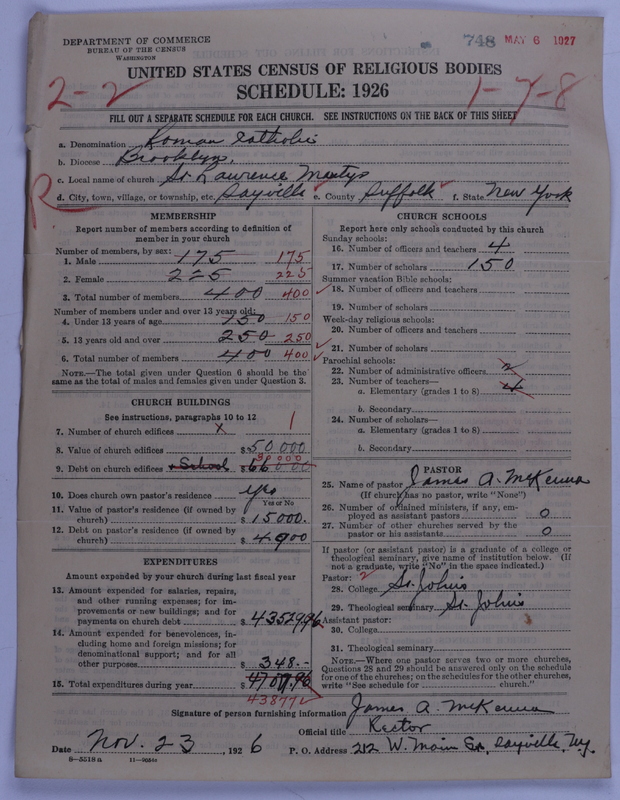 DEPARTMENT OF COMMERCE
BUREAU OF THE CENSUS
WASHINGTON
748 MAY 6 1927
UNITED STATES CENSUS OF RELIGIOUS BODIES
SCHEDULE: 1926
2-2
1-7-8
FILL OUT A SEPARATE SCHEDULE FOR EACH CHURCH. SEE INSTRUCTIONS ON THE BACK OF THIS SHEET
a. Denomination Roman Catholic
b. Diocese Brooklyn,
c. Local name of church St. Lawrence Martyr
R
d. City, town, village, or township, etc. Sayville e. County Suffolk f. State New York
MEMBERSHIP
Report number of members according to definition of
member in your church
Number of members, by sex:
1. Male 175 175
2. Female 225 225
3. Total number of members 400 400
Number of members under and over 13 years old:
4. Under 13 years of age 150 150
5. 13 years old and over 250 250
6. Total number of members 400 400
NOTE.—The total given under Question 6 should be the
same as the total of males and females given under Question 3.
CHURCH BUILDINGS
See instructions, paragraphs 10 to 12
7. Number of church edifices x 1
8. Value of church edifices $ 50 000
9. Debt on church edifices + School $
10. Does church own pastor's residence yes
Yes or No
11. Value of pastor's residence (if owned by
church) $ 15000.
12. Debt on pastor's residence (if owned by
church) $ 4900
EXPENDITURES
Amount expended by your church during last fiscal year
13. Amount expended for salaries, repairs,
and other running expenses; for im-
provements or new buildings; and for
payments on church debt $ 43529.96
14. Amount expended for benevolences, in-
cluding home and foreign missions; for
denominational support; and for all
other purposes $ 348.-
15. Total expenditures during year $
43877
CHURCH SCHOOLS
Report here only schools conducted by this church
Sunday schools:
16. Number of officers and teachers 4
17. Number of scholars 150
Summer vacation Bible schools:
18. Number of officers and teachers
19. Number of scholars
Week-day religious schools:
20. Number of officers and teachers
21. Number of scholars
Parochial schools:
22. Number of administrative officers 2
23. Number of teachers—
a. Elementary (grades 1 to 8) 4
b. Secondary
24. Number of scholars—
a. Elementary (grades 1 to 8)
b. Secondary
PASTOR
25. Name of pastor James A. McKenna
(If church has no pastor, write "None")
26. Number of ordained ministers, if any, em-
ployed as assistant pastors 0
27. Number of other churches served by the
pastor or his assistants 0
If pastor (or assistant pastor) is a graduate of a college or
theological seminary, give name of institution below. (If
not a graduate, write "No" in the space indicated.)
Pastor: 2
28. College St. Johns
29. Theological seminary St. Johns
Assistant pastor:
30. College
31. Theological seminary
NOTE.—Where one pastor serves two or more churches,
Questions 28 and 29 should be answered only on the schedule
for one of the churches; on the schedules for the other churches,
write "See schedule for church."
Signature of person furnishing information James A. McKenna
Official title Rector
Date Nov. 23, 1926 P. O. Address 212 W. Main St, Sayville, N.Y.
8—5518a